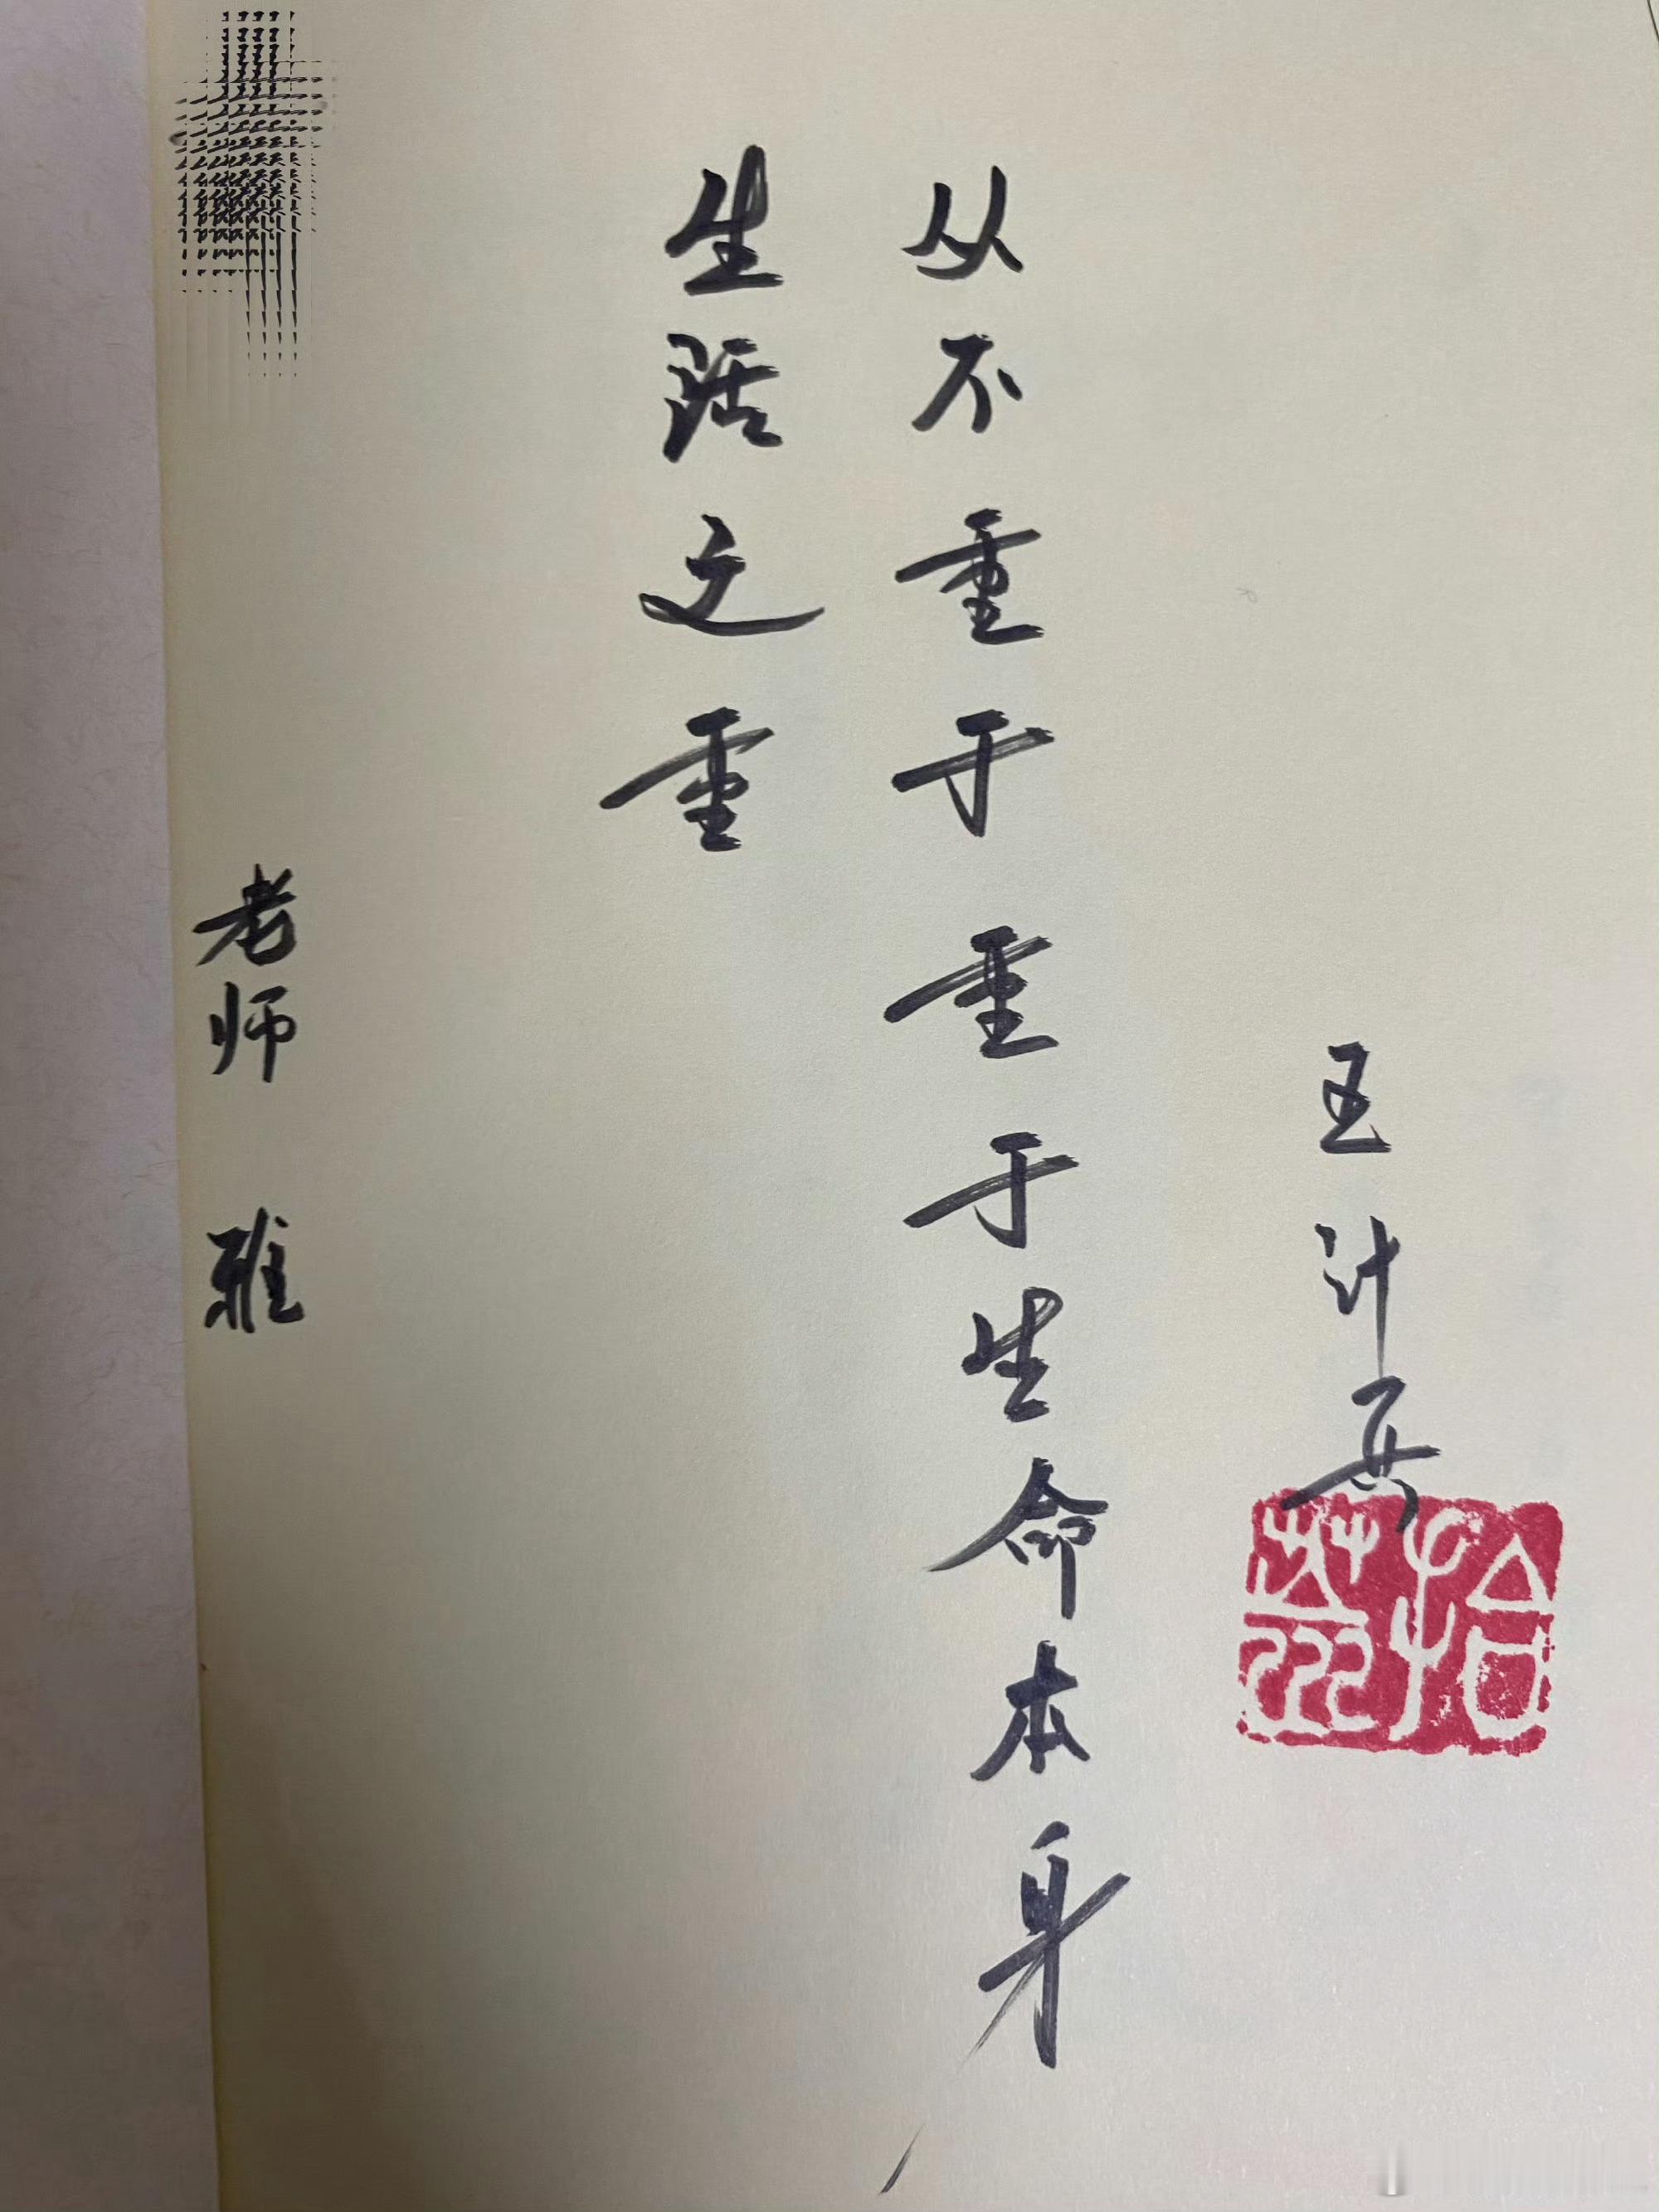 老师 雅
生活之重
从不重于重于生命本身
王计兵
拾荒